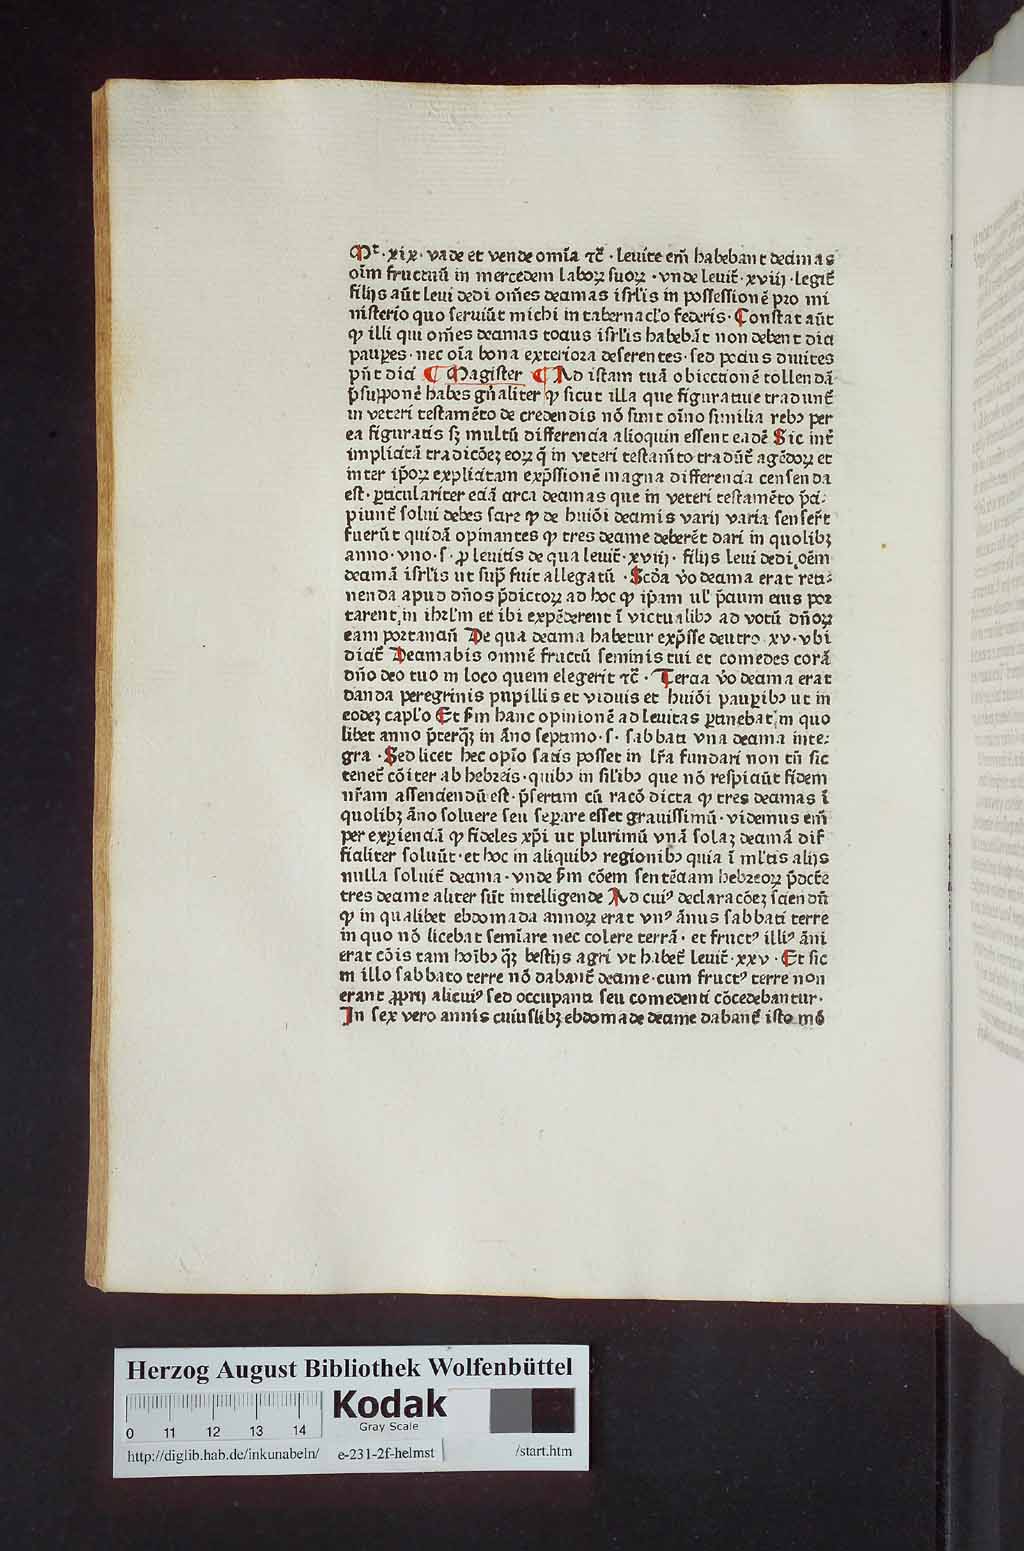 Mt̄ · xix · vade et vende omīa ⁊c̄ · leuite em̄ habebant decimas
oīm fructuū in mercedem laboꝝ suoꝝ · vnde leuit̄ · xviij · legit̄
filijs aūt leui dedi om̄es decimas isrl̓is in possessionē pro mi
nisterio quo seruiūt michi in tabernacl̓o federis · Constat aūt
ꝙ illi qui om̄es decimas tocius isrl̓is habebāt non debent dici
paup̱es · nec oīa bona exteriora deserentes · sed pocius diuites
pn̄t dici ¶ Magister ¶ Ad istam tuā obiectionē tollendā
p̄supponē habes gn̄aliter ꝙ sicut illa que figuratiue tradunt̄
in veteri testamēto de credendis nō sunt oīno similia rebꝫ per
ea figuratis sꝫ multū differencia alioquin essent eadē Sic int̄
implicitā tradicōeꝫ eoꝝ q̄ in veteri testam̄to tradūt̄ agēdoꝝ et
inter ip̄oꝝ explicitam exp̄ssionē magna differencia censenda
est · ꝑticulariter eciā circa decimas que in veteri testamēto p̄ci-
piunt̄ solui debes scire ꝙ de huiōi decimis varij varia senser̄t
fuerūt quidā opinantes ꝙ tres decime deberēt dari in quolibꝫ
anno · vno · s · ꝓ leuitis de qua leuit̄ · xviij · filijs leui dedi oēm
decimā isrl̓is ut sup̄ fuit allegatū · Scd̄a v̄o decima erat reti-
nenda apud dn̄os p̄dictoꝝ ad hoc ꝙ ip̄am ul̓ p̄cium eius por
tarent in ihrl̓m et ibi expēderent ī victualibꝫ ad votū dn̄oꝝ
eam portanciū De qua decima habetur exp̄sse deutro · xv · vbi
dicit̄ Decimabis omnē fructū seminis tui et comedes corā
dn̄o deo tuo in loco quem elegerit ⁊c̄ · Tercia v̄o decima erat
danda peregrinis pupillis et viduis et huiōi paup̱ibꝫ ut in
eodeꝫ capl̓o Et s̄m hanc opinionē ad leuitas ꝑtinebat in quo
libet anno p̄terqꝫ in āno septimo · s · sabbati vna decima inte-
gra · Sed licet hec opīo satis posset in lr̄a fundari non tn̄ sic
tenet̄ cōiter ab hebreis · quibꝫ in silibꝫ que nō respiciūt fidem
nr̄am assenciendū est · p̄sertim cū racō dicta ꝙ tres decimas ī
quolibꝫ āno soluere seu sep̱are esset grauissimū · videmus em̄
per exp̱ienciā ꝙ fideles xp̄i ut plurimū vnā solaꝫ decimā dif
ficialiter soluūt · et hoc in aliquibꝫ regionibꝫ quia ī ml̓tis alijs
nulla soluit̄ decima · vnde s̄m cōem sentēciam hebreoꝝ p̄dcēe
tres decime aliter sūt intelligende Ad cuiꝰ declaracōeꝫ sciendū
ꝙ in qualibet ebdomada annoꝝ erat vnꝰ ānus sabbati terre
in quo nō licebat semīare nec colere terrā · et fructꝰ illiꝰ āni
erat cōis tam hoībꝫ qꝫ bestijs agri vt habet̄ leuit̄ · xxv · Et sic
in illo sabbato terre nō dabant̄ decime · cum fructꝰ terre non
erant ꝓprij alicuiꝰ sed occupanti seu comedenti cōcedebantur ·
In sex vero annis cuiuslibꝫ ebdomade decime dabant̄ isto mō
Herzog August Bibliothek Wolfenbüttel
Kodak
Gray Scale
0 11 12 13 14
http://diglib.hab.de/inkunabeln/ e-231-2f-helmst /start.htm